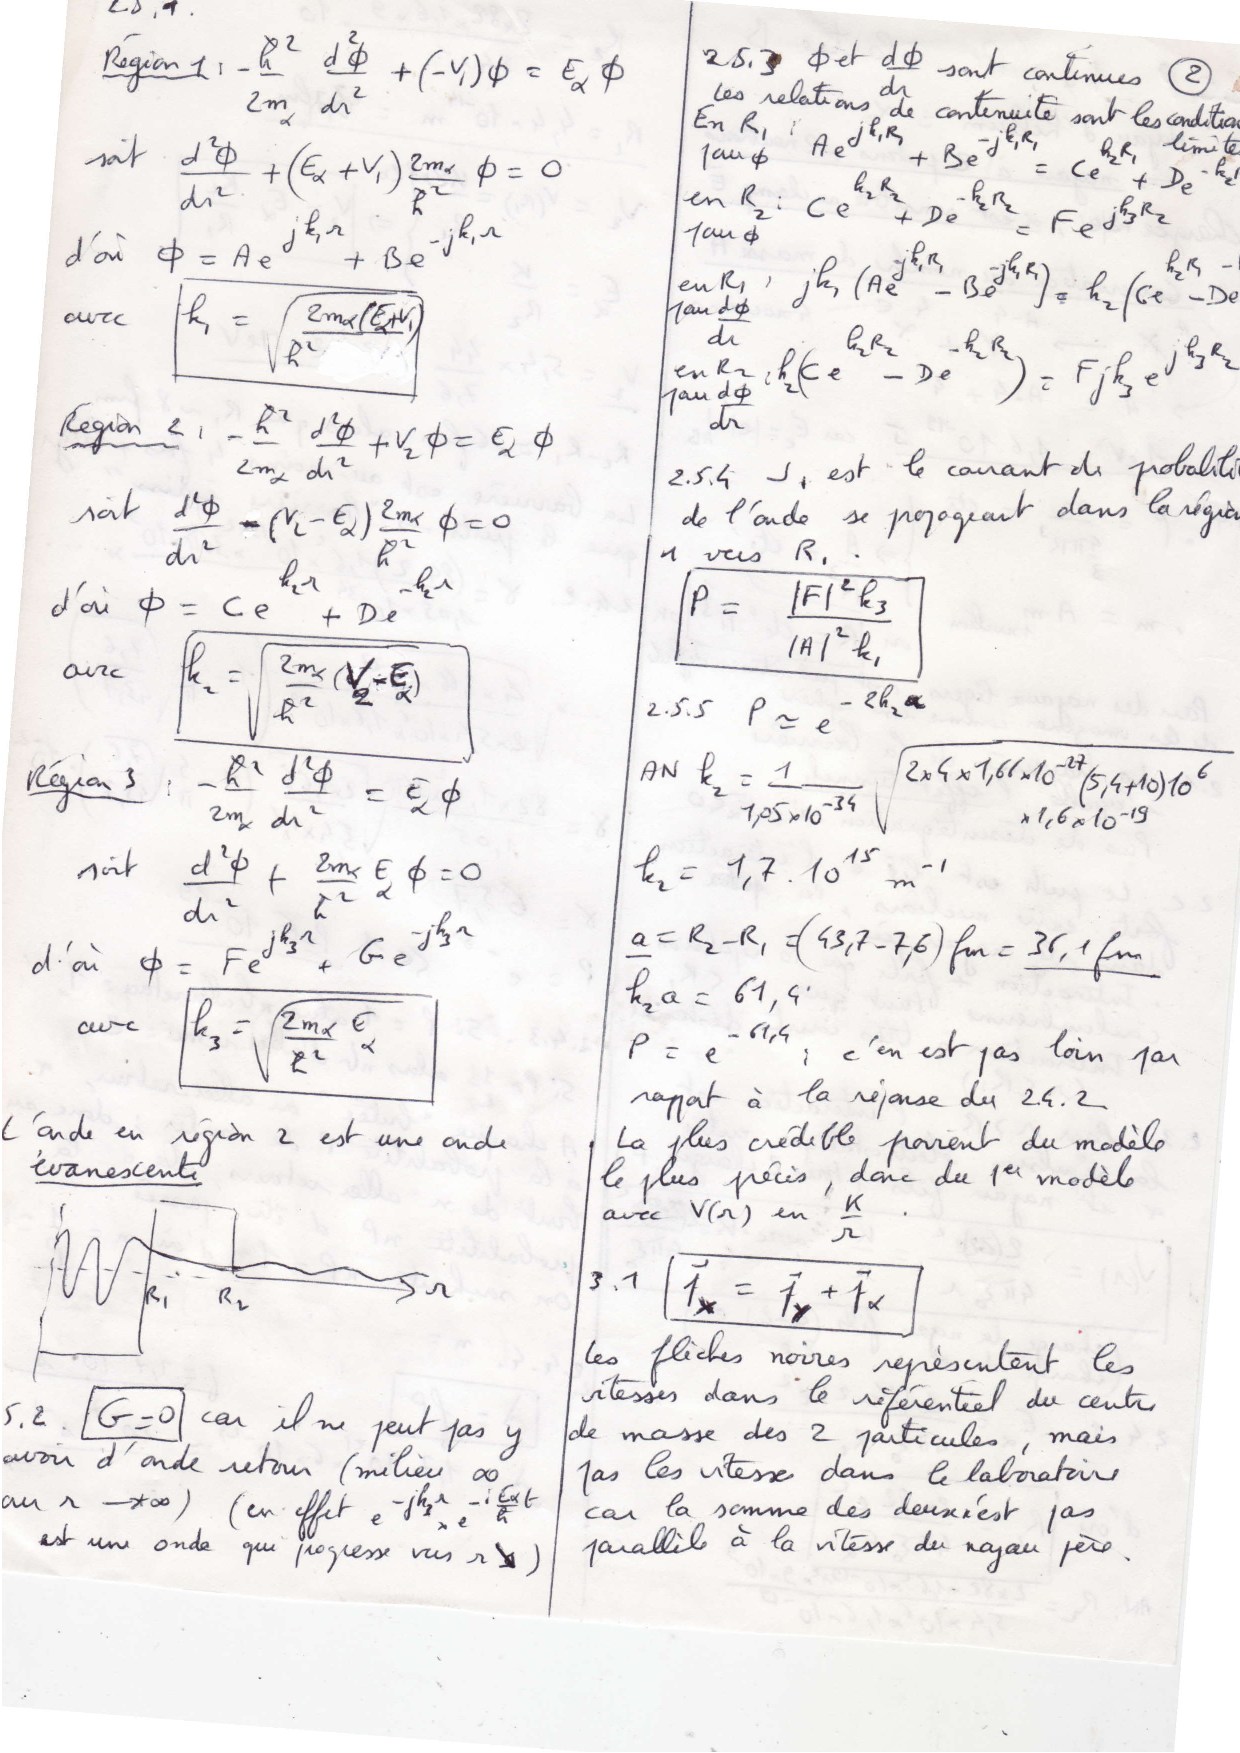 2.5.1.
Région 1 : -ħ²/2mα d²ϕ/dr² + (-V₁)ϕ = Eα ϕ
soit d²ϕ/dr² + (Eα + V₁) 2mα/ħ² ϕ = 0
d'où ϕ = A e^{jk₁r} + B e^{-jk₁r}
avec k₁ = √(2mα(Eα+V₁)/ħ²)
Région 2 : -ħ²/2mα d²ϕ/dr² + V₂ϕ = Eα ϕ
soit d²ϕ/dr² - (V₂ - Eα) 2mα/ħ² ϕ = 0
d'où ϕ = C e^{k₂r} + D e^{-k₂r}
avec k₂ = √(2mα/ħ² (V₂ - Eα))
Région 3 : -ħ²/2mα d²ϕ/dr² = Eα ϕ
soit d²ϕ/dr² + 2mα/ħ² Eα ϕ = 0
d'où ϕ = F e^{jk₃r} + G e^{-jk₃r}
avec k₃ = √(2mα/ħ² Eα)
L'onde en région 2 est une onde
évanescente
R₁ R₂ r
5.2. G=0 car il ne peut pas y
avoir d'onde retour (milieu ∞
au r → ∞) (en effet e^{-jk₃r} × e^{-i Eα/ħ t}
est une onde qui progresse vers r ↘)
2.5.3 ϕ et dϕ/dr sont continues ②
Les relations de continuité sont les conditions
limites
En R₁ :
pour ϕ A e^{jk₁R₁} + B e^{-jk₁R₁} = C e^{k₂R₁} + D e^{-k₂R₁}
en R₂ : C e^{k₂R₂} + D e^{-k₂R₂} = F e^{jk₃R₂}
pour ϕ
en R₁ : jk₁ (A e^{jk₁R₁} - B e^{-jk₁R₁}) = k₂ (C e^{k₂R₁} - D e
pour dϕ/dr
en R₂ : k₂ (C e^{k₂R₂} - D e^{-k₂R₂}) = F jk₃ e^{jk₃R₂}
pour dϕ/dr
2.5.4 J₁ est le courant de probabilité
de l'onde se propageant dans la région
1 vers R₁.
P = |F|² k₃ / |A|² k₁
2.5.5 P ≃ e^{-2k₂a}
AN k₂ = 1/1,05×10⁻³⁴ √(2×4×1,66×10⁻²⁷ (5,4+10)10⁶ ×1,6×10⁻¹⁹)
k₂ = 1,7 . 10¹⁵ m⁻¹
a = R₂ - R₁ = (43,7 - 7,6) fm = 36,1 fm
k₂a = 61,4
P = e^{-61,4} ; c'en est pas loin par
rapport à la réponse du 2.4.2
. La plus crédible provient du modèle
le plus précis, donc du 1er modèle
avec V(r) en K/r .
3.1 p⃗x = p⃗y + p⃗α
Les flèches noires représentent les
vitesses dans le référentiel du centre
de masse des 2 particules, mais
pas les vitesses dans le laboratoire
car la somme des deux n'est pas
parallèle à la vitesse du noyau père.